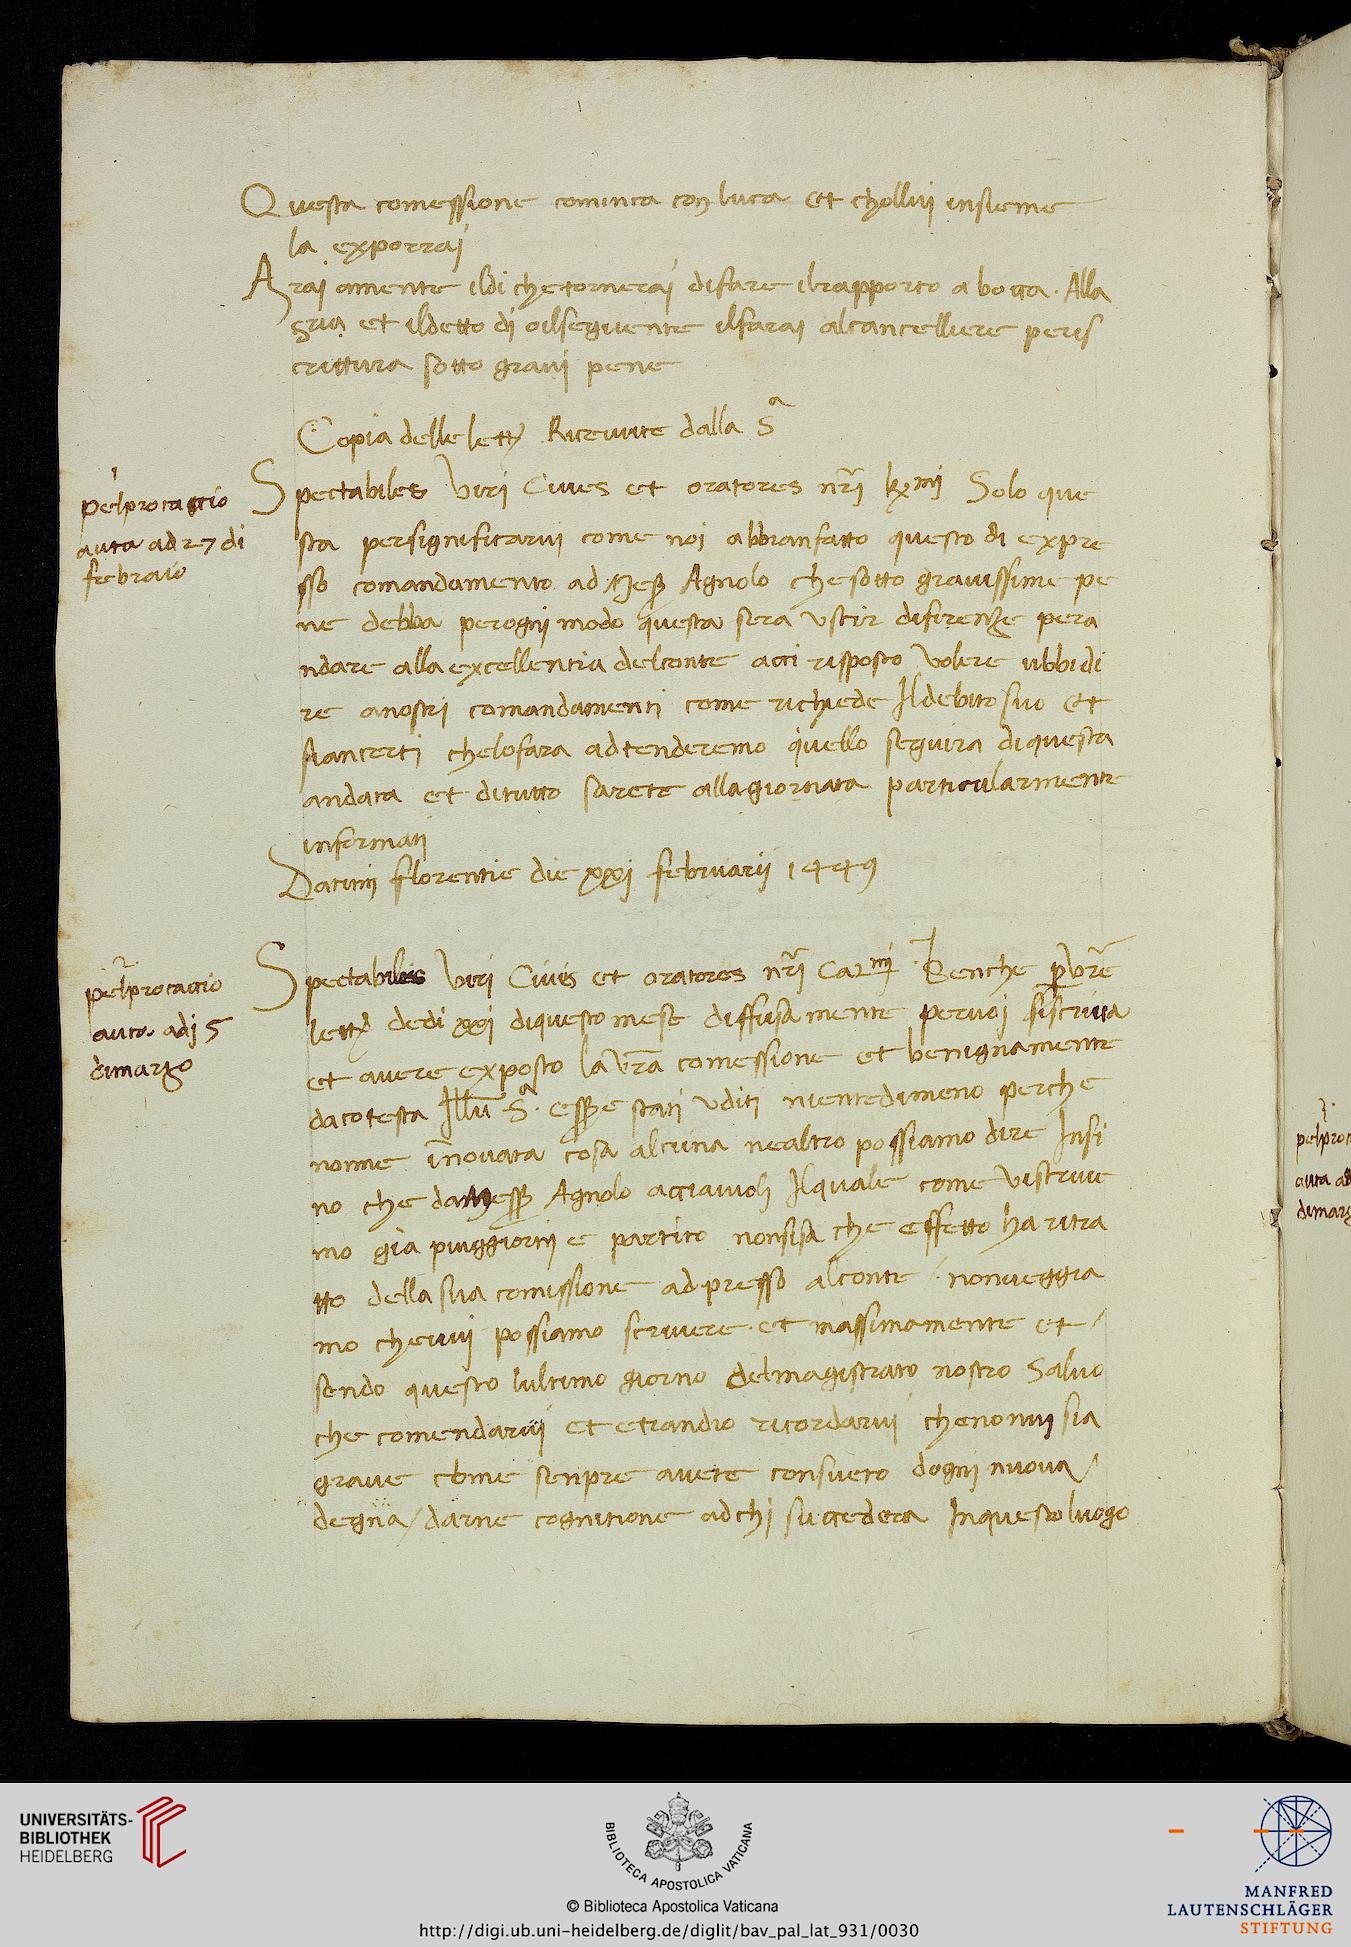 Questa comessione comunica con luca et chollui insieme
la exporrai
Arai amente ildi chetornerai difare ilrapporto a bocca. Alla
Sria et ildetto di oilseguente ilfarai alcancelliere peris
crittura sotto gravi pene
Copia delle lett Ricevute dalla Sa
1
pelprocaccio
auta ad 27 di
febraio
Spectabiles Viri Cives et oratores nri kxmi Solo que
sta persignificarvi come noi abbianfatto questo di expre
sso comandamento ad Messer Agnolo che sotto gravissime pe
ne debba perogni modo questa sera uscir difirenze pera
ndare alla excellentia delconte acci risposto volere ubbidi
re anostri comandamenti come richiede Ildebito suo et
siancerti chelofara adtenderemo quello seguira diquesta
andata et ditutto sarete allagiornata particularmente
informati
Datum florentie die xxj februarij 1449
2
pelprocaccio
auta adj 5
dimarzo
Spectabiles Viri Cives et oratores nri Carmi. Benche per vre
lett dedi xxj diquesto mese diffusamente pervoj siscriva
et avere exposto la vra comessione et benignamente
dacotesta Illu Sa. essere stati uditi nientedimeno perche
nonne innovata cosa alcuna nealtro possiamo dire Insi
no che da Messer Agnolo acciaiuoli Ilquale come viscrive
mo gia piuggiorni e partito nonsisa che effetto ha ritra
tto della sua comissione ad presso alconte / nonveggia
mo chevvi possiamo scrivere. et massimamente et/
sendo questo lultimo giorno delmagistrato nostro Salvo
che comendarvi et etiandio ricordarvi chenonvi sia
grave come senpre avete consueto dogni nuova/
degna/ darne cognitione adchi succedera Inquestoluogo
3
pelproc
auta ad
dimarz
UNIVERSITÄTS-
BIBLIOTHEK
HEIDELBERG
BIBLIOTECA APOSTOLICA VATICANA
© Biblioteca Apostolica Vaticana
http://digi.ub.uni-heidelberg.de/diglit/bav_pal_lat_931/0030
MANFRED
LAUTENSCHLÄGER
STIFTUNG